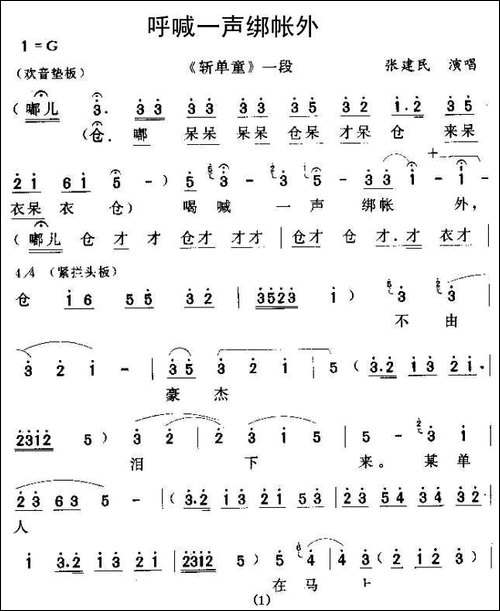 呼喊一声绑帐外
1=G
(欢音垫板) 《斩单童》一段 张建民 演唱
(嘟儿 3. 33 33 35 35 32 1.2 35
(仓. 嘟 呆呆 呆呆 仓呆 才呆 仓 来呆
21 61 5 -) 5 3 - 3 5 - 33 1 - 1 -
衣呆 衣 仓) 喝喊 一 声 绑帐 外,
(嘟儿 仓 才 才 仓才 才才 仓才 仓才 仓 才.才 衣才
4/4 (紧拦头板)
仓 16 55 32 | 3523 1) 3 3 |
不 由
3 2 1 - | 35 3 2 1 | 5 (3.2 13 21 |
豪 杰
2312 5) 3 2 | 2 3 1 5 | 5 - 3 1 |
泪 下 来。 某 单
23 63 5 - | (3.2 13 53 21 | 23 54 34 32 |
人
1 3.2 13 21 | 2312 5) 5 3 | 3 (23 21) 2 |
在 马 上
(1)